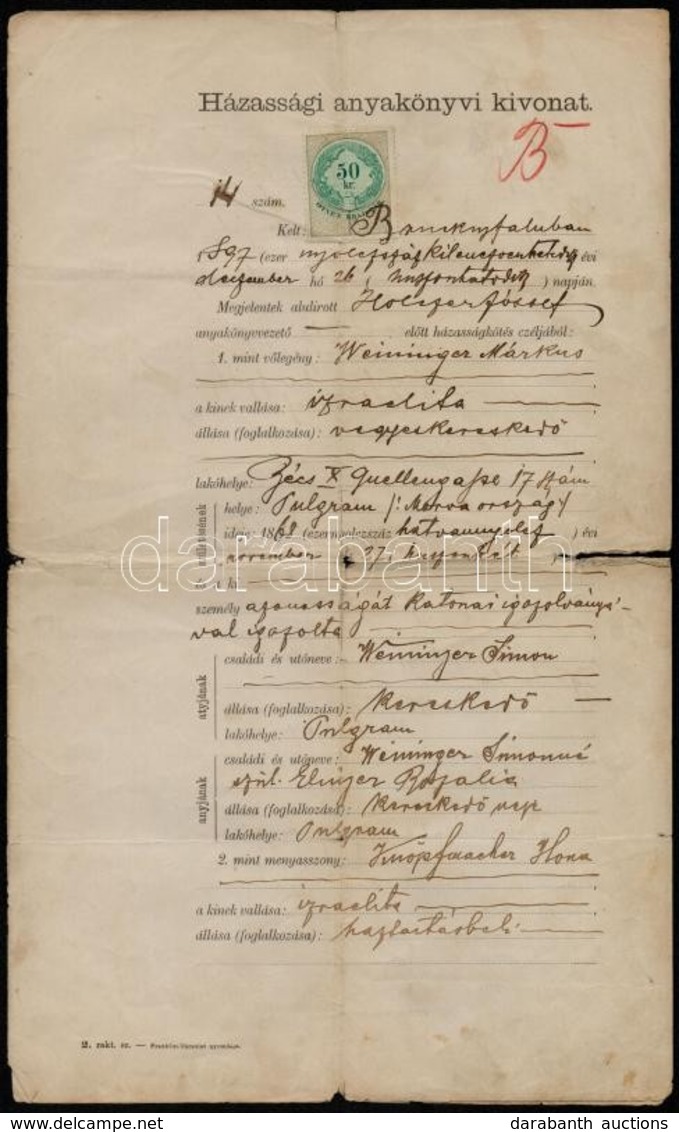 Házassági anyakönyvi kivonat.
B
50
kr.
14 szám.
Kelt:
1897 (ezer nyolczszáz kilenczvenhetedik) évi
deczember hó 26 (huszonhatodik) napján.
Megjelentek alulirott Holczer József
anyakönyvvezető — előtt házasságkötés czéljából:
1. mint vőlegény: Weininger Márkus
a kinek vallása: izraelita
állása (foglalkozása): vegyeskereskedő
lakóhelye: Bécs X Quellengasse 17 szám
helye: Pulgram /: Morvaország :/
ideje: 186 (ezernyolczszáz hatvan ) évi
november 27,
személy azonosságát katonai igazolványá-
val igazolta
családi és utóneve: Weininger Simon
atyjának
állása (foglalkozása): kereskedő
lakóhelye: Pulgram
családi és utóneve: Weininger Simonné
szül. Rozalia
anyjának
állása (foglalkozása): kereskedő neje
lakóhelye: Pulgram
2. mint menyasszony: Knöpfmacher Ilona
a kinek vallása: izraelita
állása (foglalkozása): háztartásbeli
2. rakt. sz. — Franklin-Társulat nyomdája.
darabanth
darabanth auctions